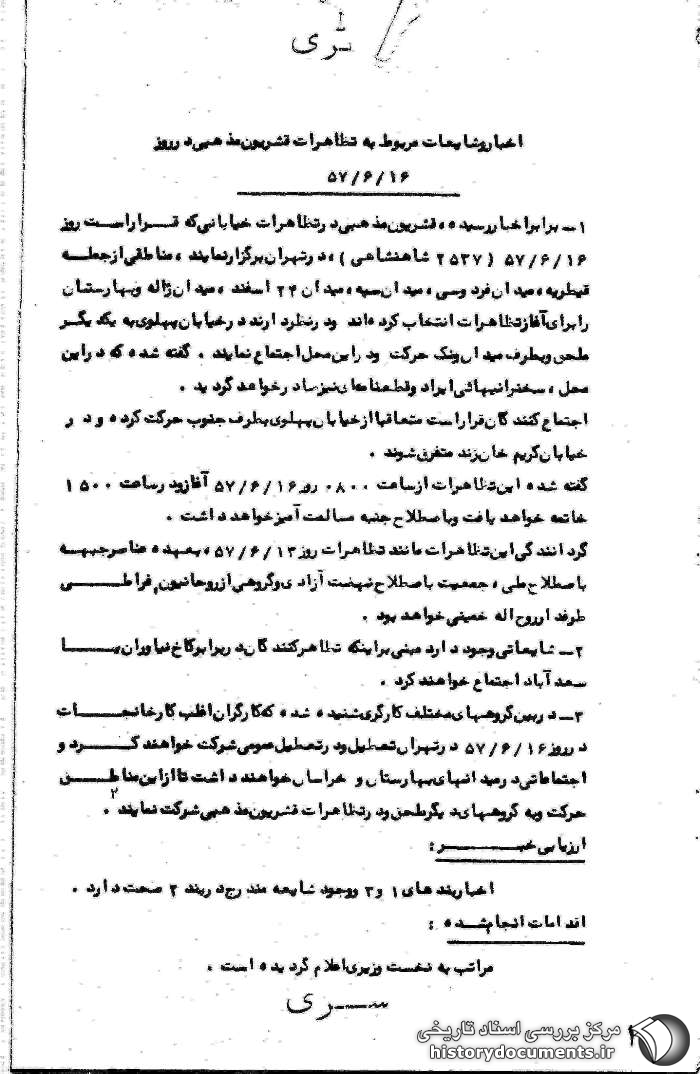 سری
اخبار و شایعات مربوط به تظاهرات قشریون مذهبی در روز
۵۷/۶/۱۶
۱ــ برابر اخبار رسیده، قشریون مذهبی در تظاهرات خیابانی که قرار است روز
۵۷/۶/۱۶ (۲۵۳۷ شاهنشاهی)، در تهران برگزار نمایند، مناطقی از جمله
قیطریه، میدان فردوسی، میدان سپه، میدان ۲۴ اسفند، میدان ژاله و بهارستان
را برای آغاز تظاهرات انتخاب کرده‌اند و در نظر دارند در خیابان پهلوی به یکدیگر
ملحق و بطرف میدان ونک حرکت و در این محل اجتماع نمایند. گفته شده که در این
محل، سخنرانیهائی ایراد و قطعنامه‌ای نیز صادر خواهد گردید.
اجتماع کنندگان قرار است متعاقبا از خیابان پهلوی بطرف جنوب حرکت کرده و در
خیابان کریم خان زند متفرق شوند.
گفته شده این تظاهرات از ساعت ۰۸۰۰ روز ۵۷/۶/۱۶ آغاز و در ساعت ۱۵۰۰
خاتمه خواهد یافت و باصطلاح جنبه مسالمت آمیز خواهد داشت.
گردانندگی این تظاهرات مانند تظاهرات روز ۵۷/۶/۱۳، بعهده عناصر جبهه
باصطلاح ملی، جمعیت باصطلاح نهضت آزادی و گروهی از روحانیون افراطی
طرفدار روح اله خمینی خواهد بود.
۲ــ شایعاتی وجود دارد مبنی بر اینکه تظاهرکنندگان در برابر کاخ نیاوران یا
سعدآباد اجتماع خواهند کرد.
۳ــ در بین گروههای مختلف کارگری شنیده شده که کارگران اغلب کارخانجات
در روز ۵۷/۶/۱۶ در تهران تعطیل و در تعطیل عمومی شرکت خواهند کرد و
اجتماعاتی در میدانهای بهارستان و خراسان خواهند داشت تا از این مناطق
حرکت و به گروههای دیگر ملحق و در تظاهرات قشریون مذهبی شرکت نمایند ۲.
ارزیابی خبر:
اخبار بندهای ۱ و ۳ و وجود شایعه مندرج در بند ۲ صحت دارد.
اقدامات انجام شده:
مراتب به نخست وزیری اعلام گردیده است.
سری
مرکز بررسی اسناد تاریخی
historydocuments.ir